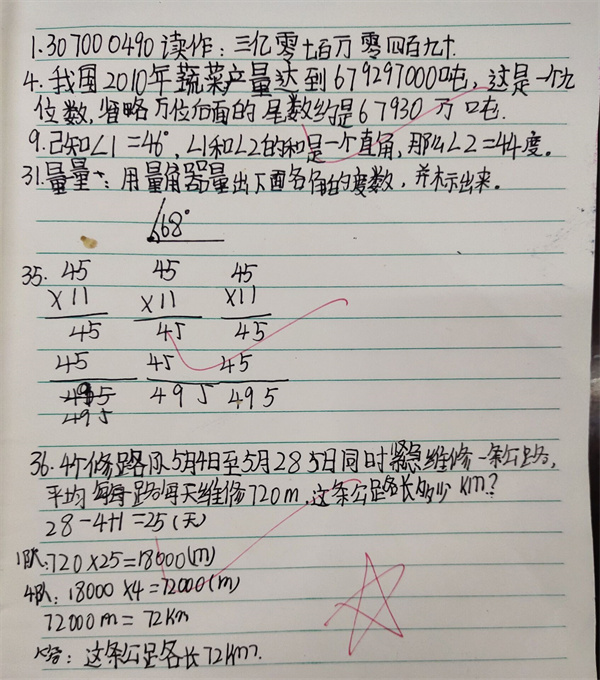 1.307000490读作：三亿零七百万零四百九十.
4.我国2010年蔬菜产量达到679297000吨，这是一个九
位数，省略万位后面的尾数约是67930万吨.
9.已知∠1=46°，∠1和∠2的和是一个直角，那么∠2=44度。
31.量量一：用量角器量出下面各角的度数，并标示出来。
68°
35. 45 45 45
×11 ×11 ×11
45 45 45
45 45 45
495 495
495
36.4个修路队5月4日至5月28日同时紧急维修一条公路，
平均每每路每天维修720m，这条公路长多少km？
28-4+1=25(天)
1队：720×25=18000(m)
4队：18000×4=72000(m)
72000m=72Km
答：这条公路长72Km.